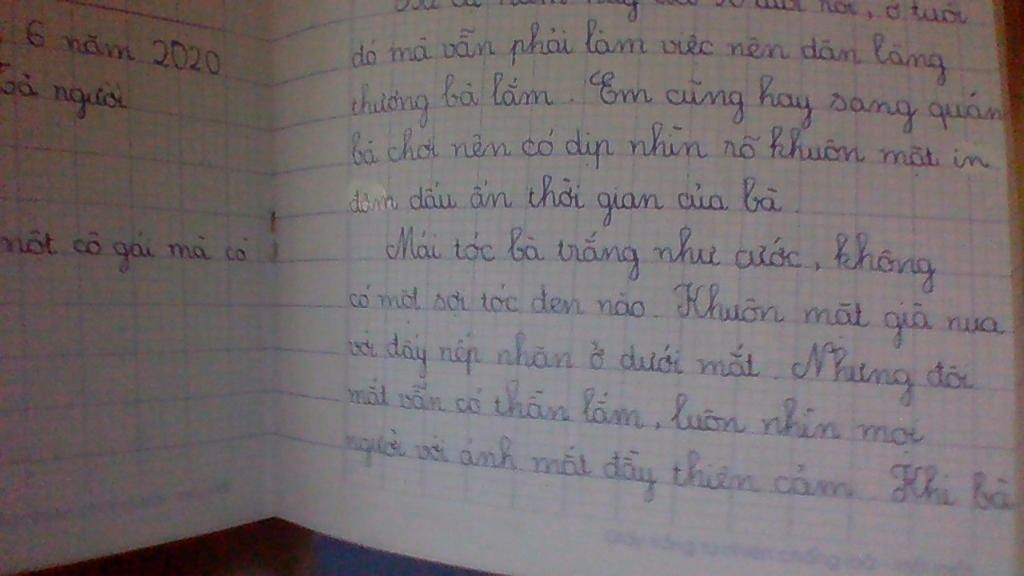 6 năm 2020
người
một cô gái mà có
tuổi
đó mà vẫn phải làm việc nên dân làng
thương bà lắm. Em cũng hay sang quán
bà chơi nên có dịp nhìn rõ khuôn mặt in
đậm dấu ấn thời gian của bà.
Mái tóc bà trắng như cước, không
có một sợi tóc đen nào. Khuôn mặt già nua
với đầy nếp nhăn ở dưới mắt. Nhưng đôi
mắt vẫn có thần lắm, luôn nhìn mọi
người với ánh mắt đầy thiện cảm. Khi bà